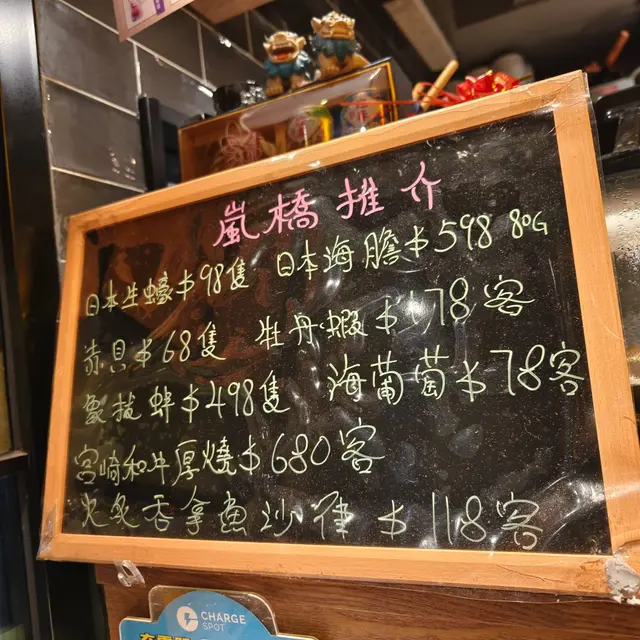 嵐橋推介
日本生蠔$98隻 日本海膽$598 80G
赤貝$68隻 牡丹蝦$178客
象拔蚌$498隻 海葡萄$78客
宮崎和牛厚燒$680客
火炙吞拿魚沙律$118客
CHARGE
SPOT